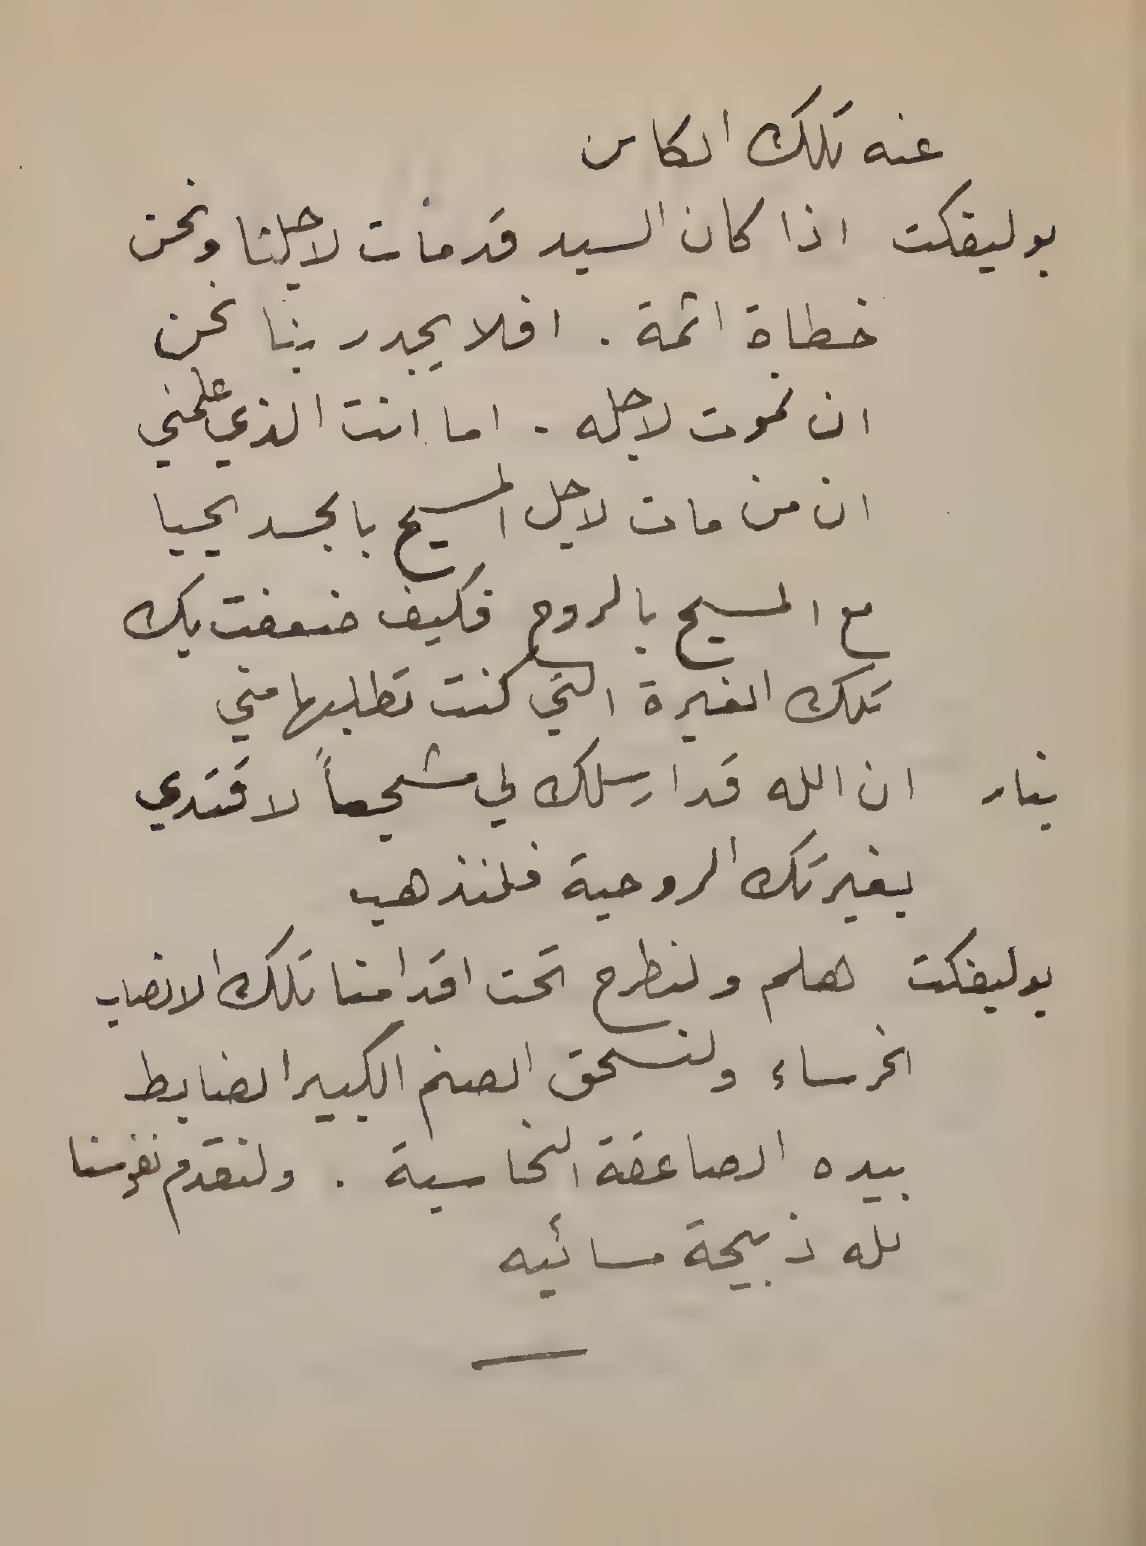 عنه تلك الكاس
بوليفكت اذا كان السيد قد مات لاجلنا ونحن
خطاة اثمة . افلا يجدر بنا نحن
ان نموت لاجله . اما انت الذي علمني
ان من مات لاجل المسيح بالجسد يحيا
مع المسيح بالروح فكيف ضعفت بك
تلك الغيرة التي كنت تطلبها مني
ينار ان الله قد ارسلك لي مشجعاً لاقتدي
بغيرتك الروحية فلنذهب
بوليفكت هلم ولنطرح تحت اقدامنا تلك الانصاب
الخرساء ولنسحق الصنم الكبير الضابط
بيده الصاعقة النحاسية . ولنقدم نفوسنا
لله ذبيحة مسائيه